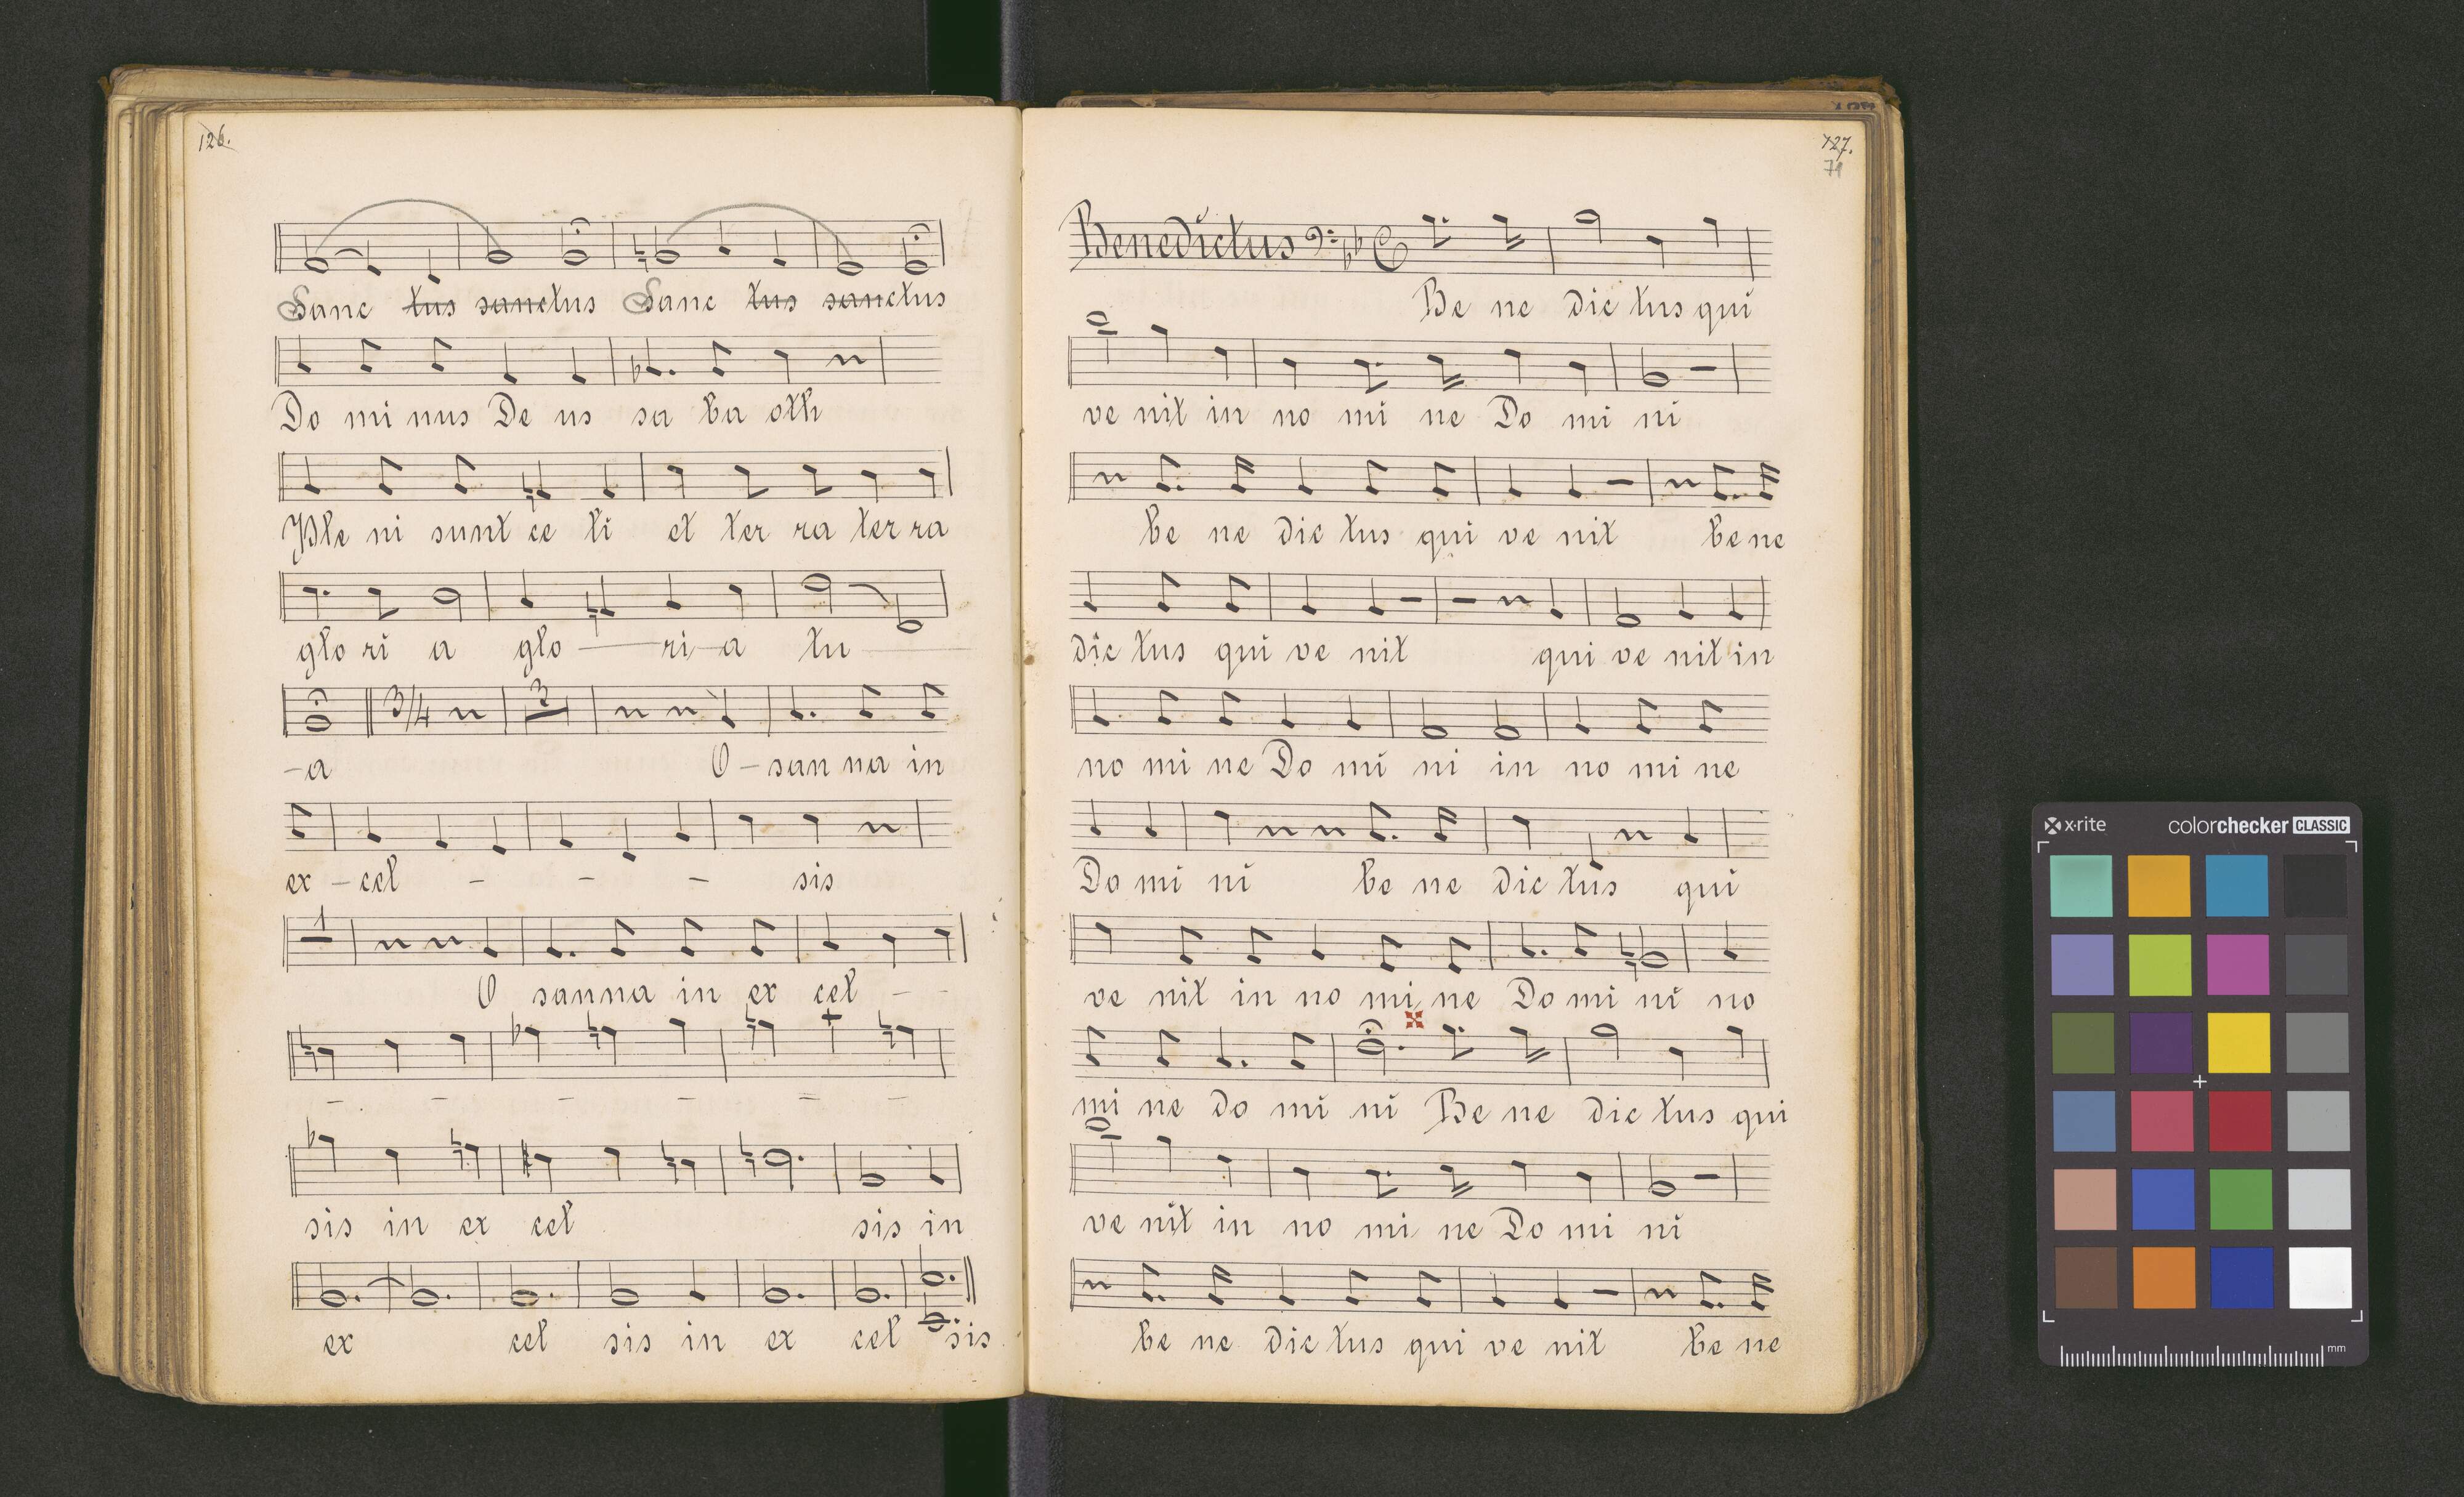 126.
Sanc tus sanctus Sanc tus sanctus
Do mi nus De us sa ba oth
Ple ni sunt ce li et ter ra ter ra
glo ri a glo — ri a tu —
3/4 3
-a O - san na in
ex - cel - - - sis
1
O sanna in ex cel - -
- - - - - -
sis in ex cel sis in
ex cel sis in ex cel sis
127.
71
Benedictus
Be ne dic tus qui
ve nit in no mi ne Do mi ni
be ne dic tus qui ve nit be ne
dic tus qui ve nit qui ve nit in
no mi ne Do mi ni in no mi ne
Do mi ni be ne dic tus qui
ve nit in no mi ne Do mi ni no
mi ne do mi ni Be ne dic tus qui
ve nit in no mi ne Do mi ni
be ne dic tus qui ve nit be ne
x-rite colorchecker CLASSIC
mm